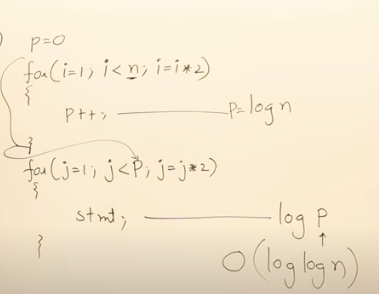 )
p=0
for(i=1; i<n; i=i*2)
{
p++; p=logn
}
for(j=1; j<P; j=j*2)
{
stmt; log P
↑
} O(loglogn)